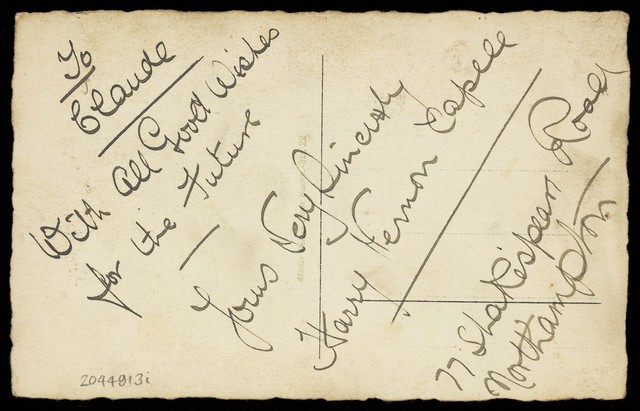 To
Claude
With All Good Wishes
for the Future
Yours Very Sincerely
Harry Vernon Capell
77 Shakespear Road
Northampton
2044913i